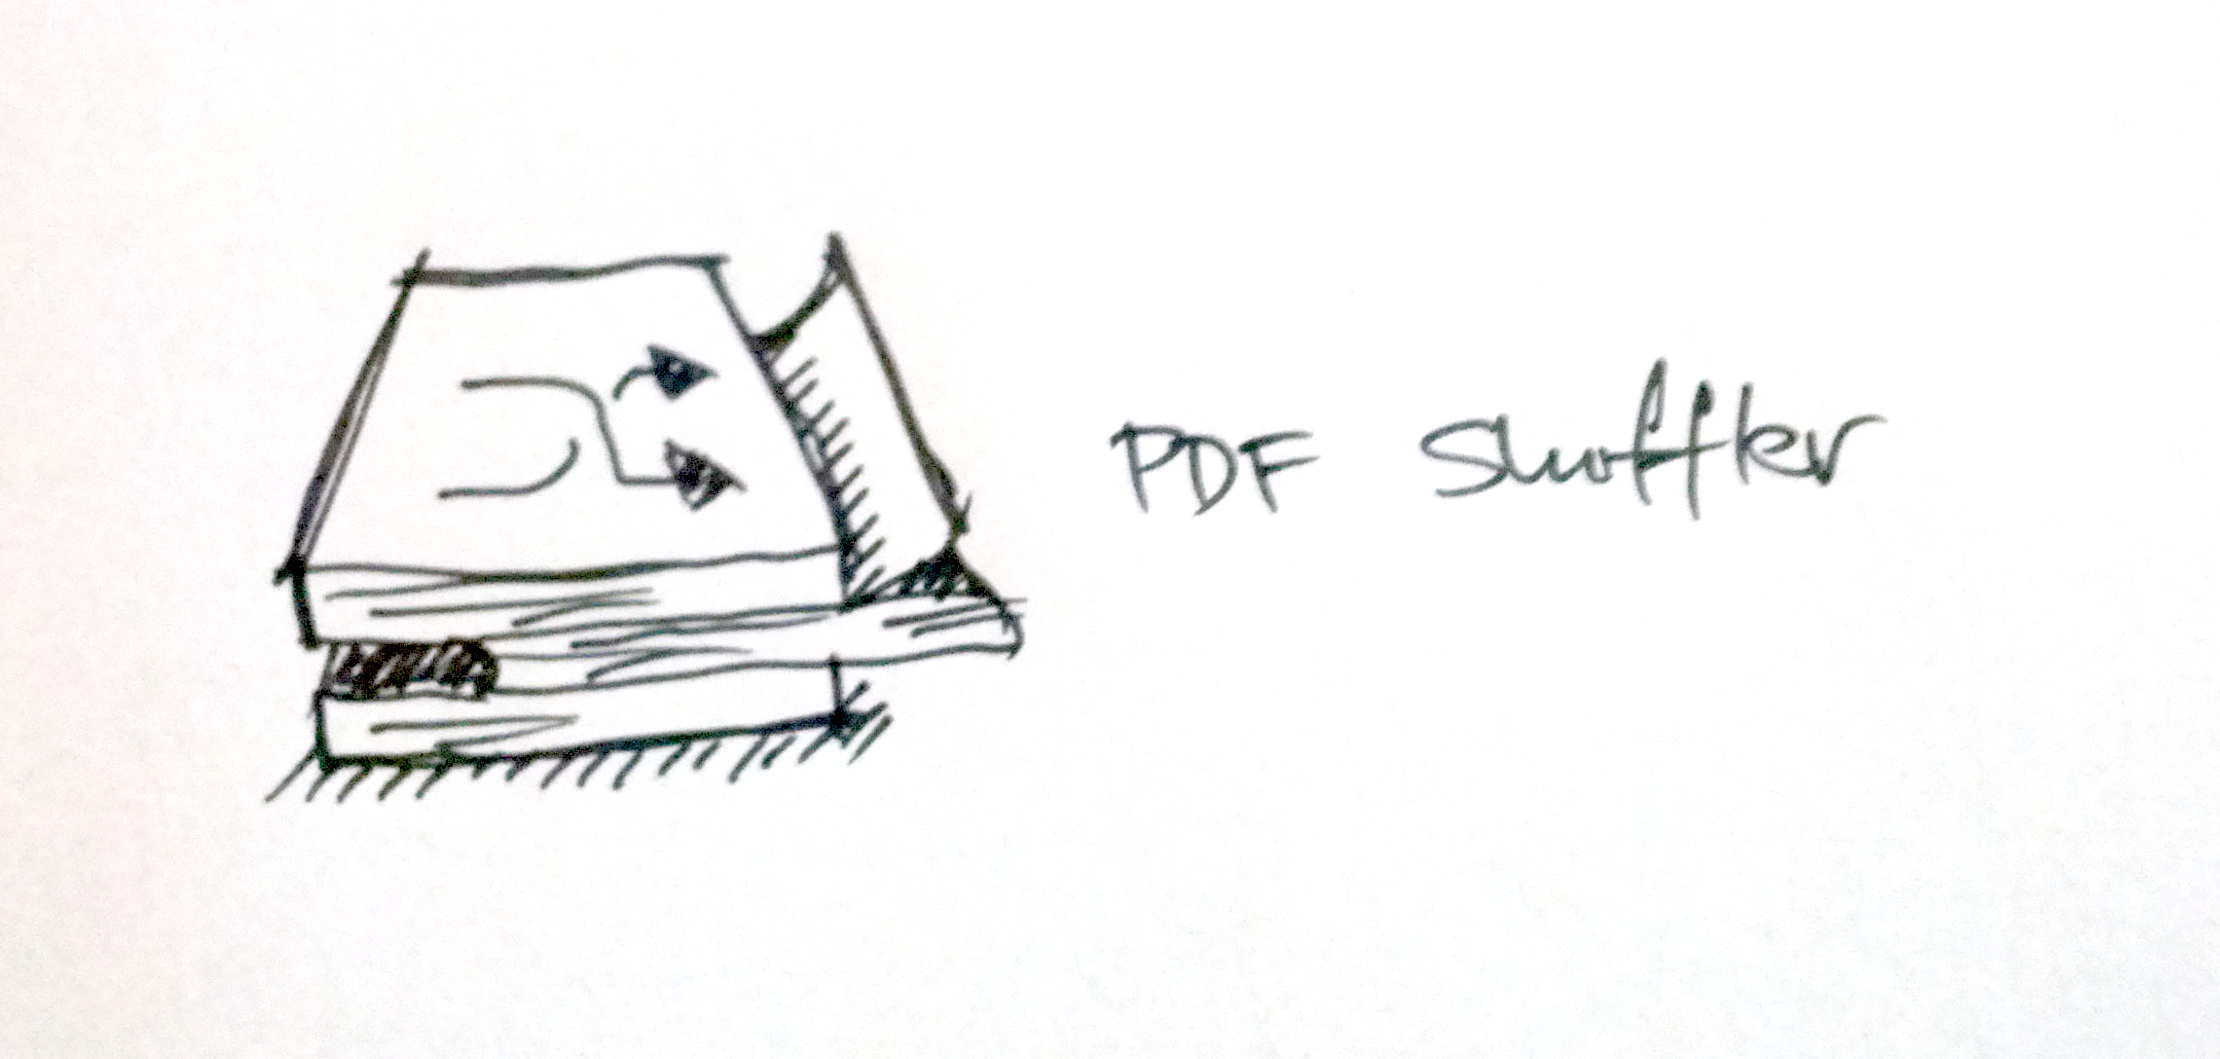 PDF Shuffler